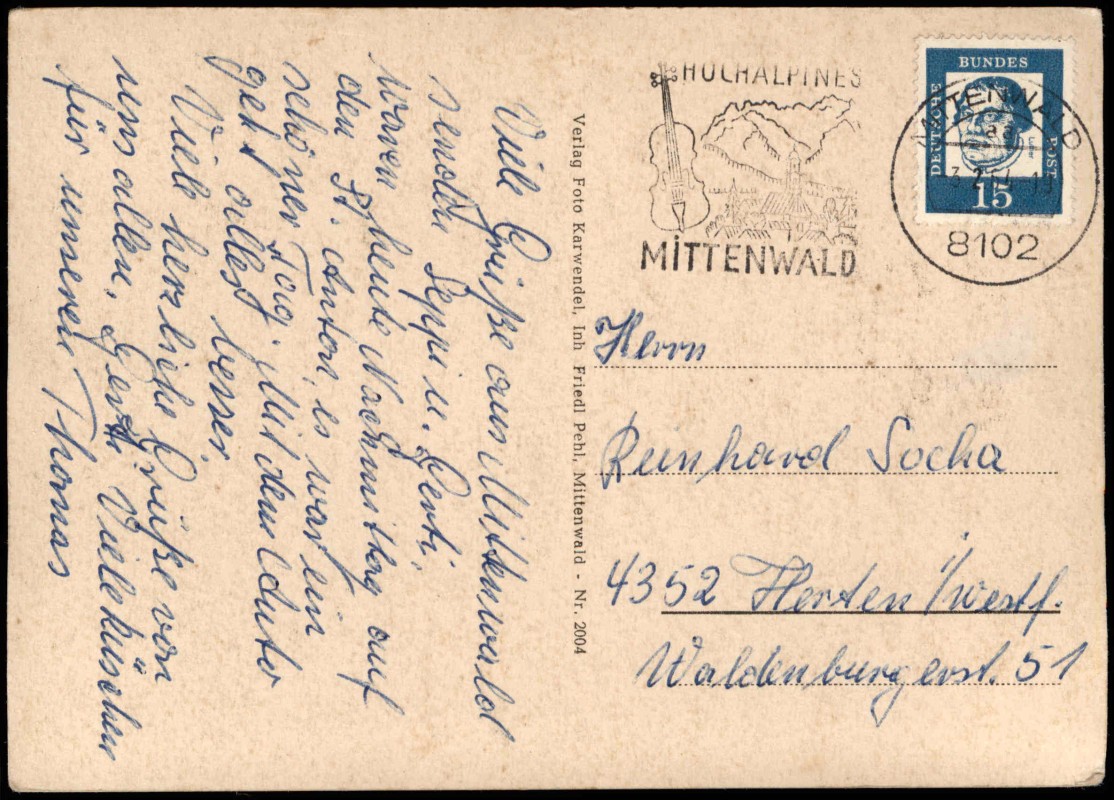 Viele Grüße aus Mittenwald
senden Seppi u. Gerti.
Waren heute Nachmittag auf
den St. Anton, es war ein
schöner Tag. Mit dem Auto
get alles besser.
Viele herzliche Grüße von
uns allen. Gerti Viele küschen
für unseren Thomas
Verlag Foto Karwendel, Inh Friedl Pehl, Mittenwald - Nr. 2004
HOCHALPINES
MITTENWALD
MITTENWALD
aa
8102
DEUTSCHE
BUNDES
POST
15
Herrn
Reinhard Socha
4352 Herten i/Westf.
Waldenburgerst. 51